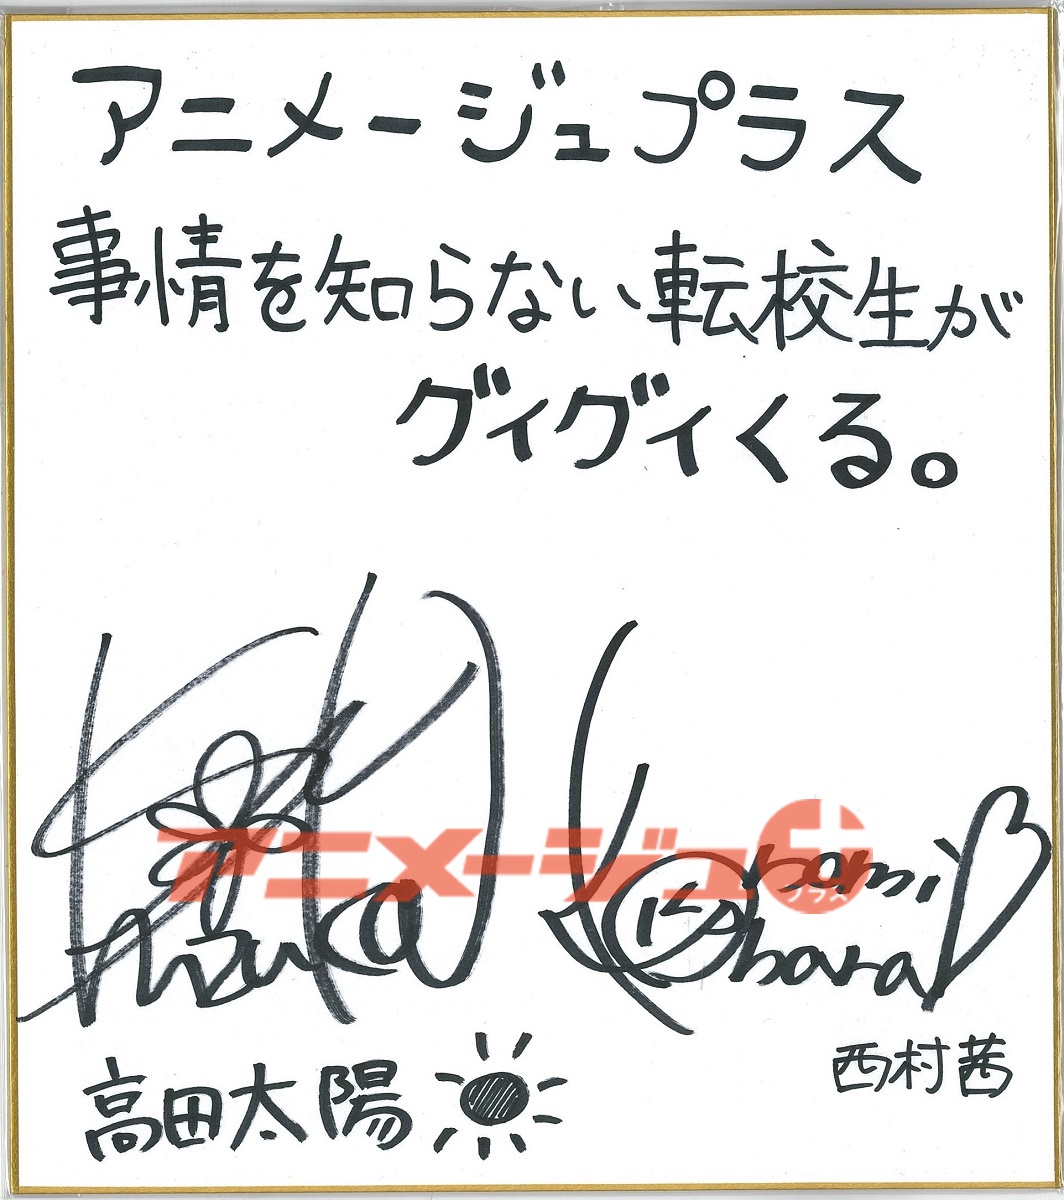 アニメージュプラス
事情を知らない転校生が
グイグイくる。
アニメージュプラス
高田太陽
西村茜